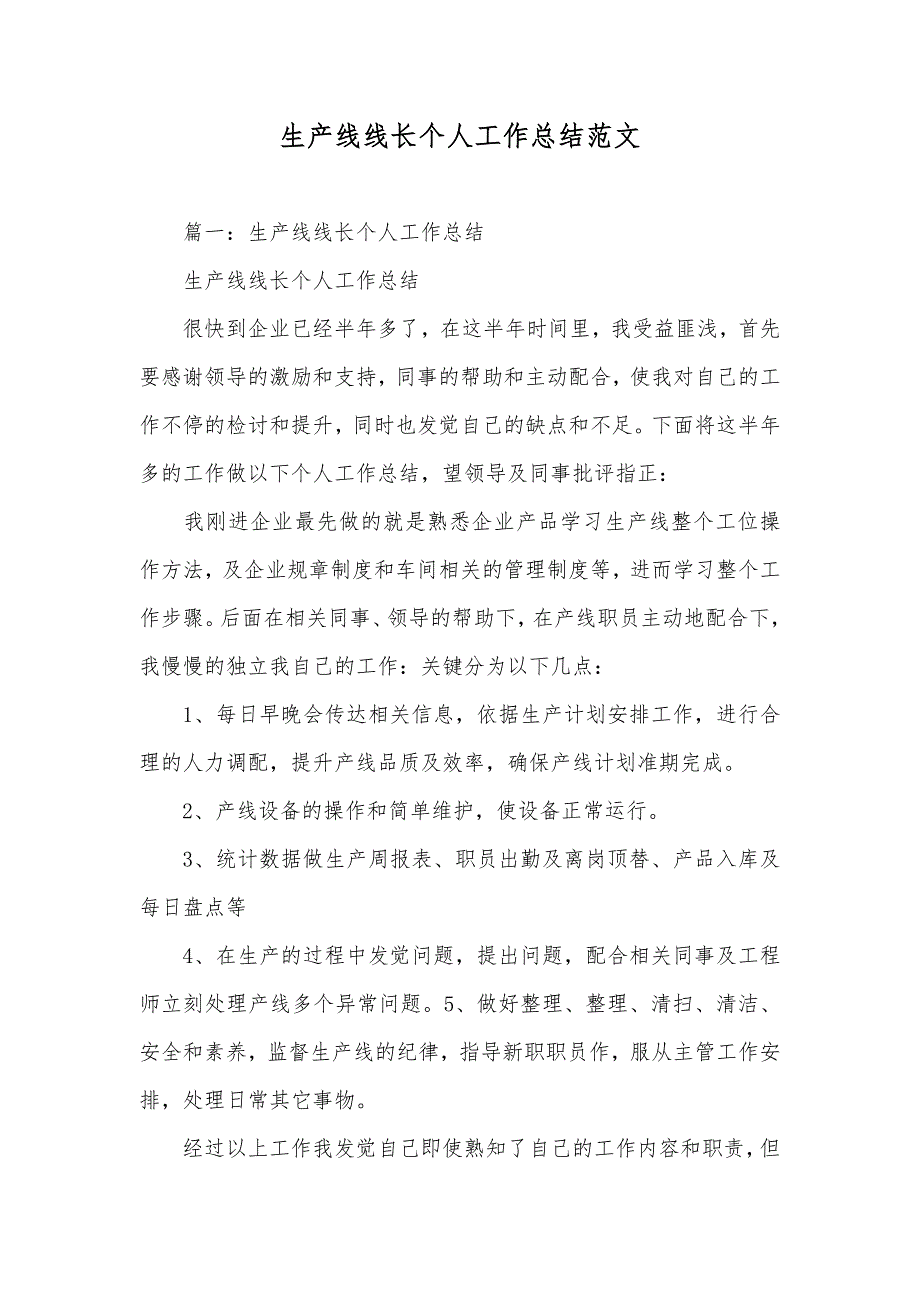 生产线线长个人工作总结范文
篇一：生产线线长个人工作总结
生产线线长个人工作总结
很快到企业已经半年多了，在这半年时间里，我受益匪浅，首先
要感谢领导的激励和支持，同事的帮助和主动配合，使我对自己的工
作不停的检讨和提升，同时也发觉自己的缺点和不足。下面将这半年
多的工作做以下个人工作总结，望领导及同事批评指正：
我刚进企业最先做的就是熟悉企业产品学习生产线整个工位操
作方法，及企业规章制度和车间相关的管理制度等，进而学习整个工
作步骤。后面在相关同事、领导的帮助下，在产线职员主动地配合下，
我慢慢的独立我自己的工作：关键分为以下几点：
1、每日早晚会传达相关信息，依据生产计划安排工作，进行合
理的人力调配，提升产线品质及效率，确保产线计划准期完成。
2、产线设备的操作和简单维护，使设备正常运行。
3、统计数据做生产周报表、职员出勤及离岗顶替、产品入库及
每日盘点等
4、在生产的过程中发觉问题，提出问题，配合相关同事及工程
师立刻处理产线多个异常问题。5、做好整理、整理、清扫、清洁、
安全和素养，监督生产线的纪律，指导新职职员作，服从主管工作安
排，处理日常其它事物。
经过以上工作我发觉自己即使熟知了自己的工作内容和职责，但